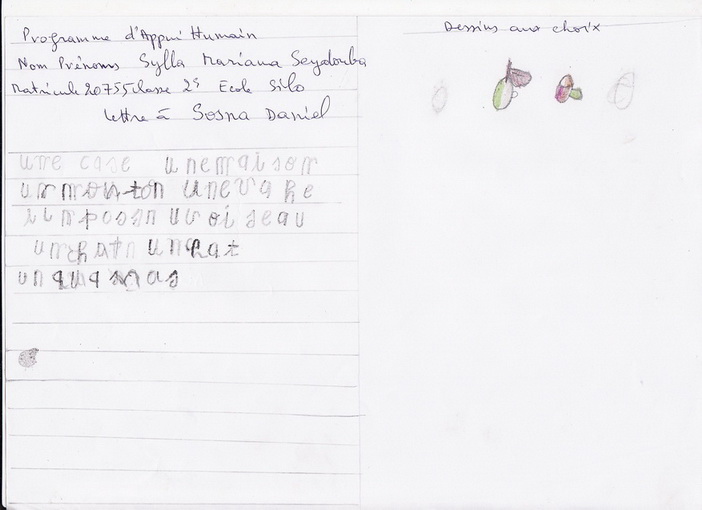 Programme d'Appui Humain
Nom Prénoms Sylla Mariama Seydouba
Matricule 20755 classe 2e Ecole Silo
Lettre à Sosna Daniel
une case une maison
un mouton une vahe
un possn un oiseau
un chatn un hat
un
Dessins aux choix